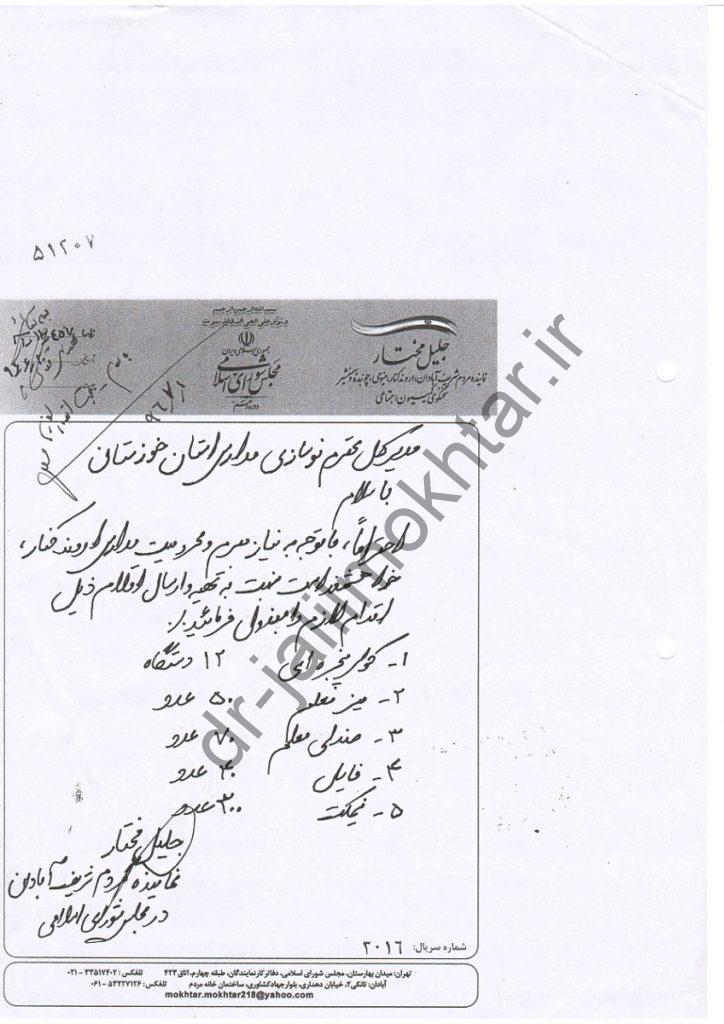 ۵۱۲۰۷
بسم الله الرحمن الرحیم
و توکل علی الحی الذی لا یموت
جمهوری اسلامی ایران
مجلس شورای اسلامی
جلیل مختار
نماینده مردم شریف آبادان، اروندکنار، مینوی، چوئبده و بهمنشیر
سخنگوی کمیسیون اجتماعی
۹۶/۷/۱
مدیر کل محترم نوسازی مدارس استان خوزستان
با سلام
احتراماً، با توجه به نیاز مبرم و محرومیت مدارس اروندکنار،
خواهشمند است نسبت به تهیه و ارسال اقلام ذیل
اقدام لازم را مبذول فرمائید.
۱- کولر پنجره‌ای ۱۲ دستگاه
۲- میز معلم ۵۰ عدد
۳- صندلی معلم ۷۰ عدد
۴- فایل ۴۰ عدد
۵- نیمکت ۳۰۰ عدد
جلیل مختار
نماینده مردم شریف آبادان
در مجلس شورای اسلامی
شماره سریال: ۳۰۱۶
تهران: میدان بهارستان، مجلس شورای اسلامی، دفاتر کار نمایندگان، طبقه چهارم، اتاق ۴۲۳ تلفکس: ۳۳۵۱۷۶۰۲ - ۰۲۱
آبادان: تانکی۲، خیابان دهداری، بلوار جهاد کشاورزی، ساختمان خانه مردم تلفکس: ۵۳۲۲۷۱۲۶ - ۰۶۱
mokhtar.mokhtar218@yahoo.com
dr-jalilmokhtar.ir